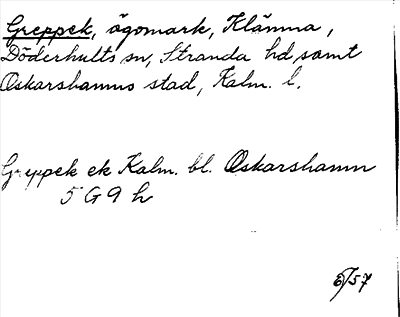 Greppek, ägomark, Klämna,
Döderhults sn, Stranda hd samt
Oskarshamns stad, Kalm. l.
Greppek ek Kalm. bl. Oskarshamn
5 G 9 h
6/57